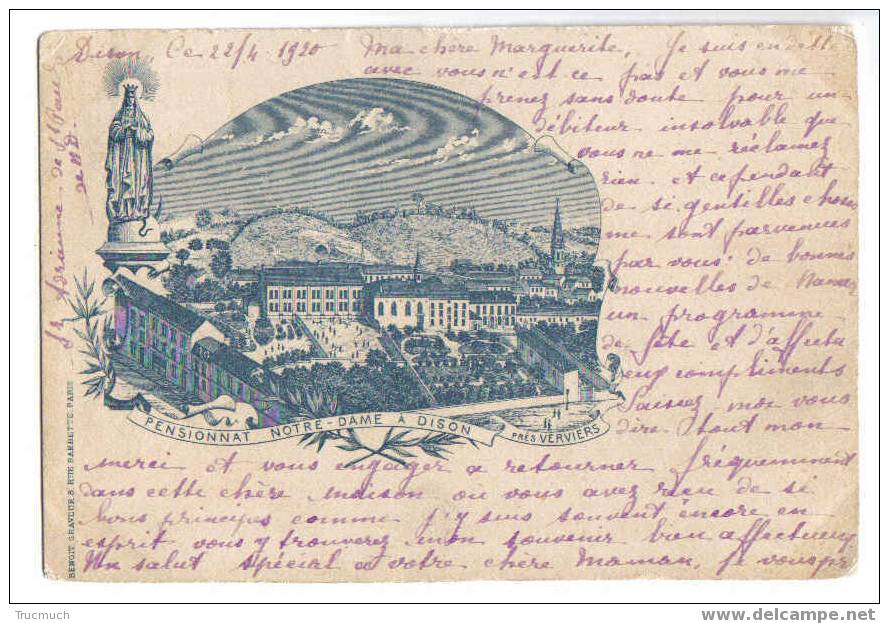 Dison, Ce 22/4 1920 Ma chère Marguerite, Je suis en dette
avec vous n'est ce pas et vous me
prenez sans doute pour un
débiteur insolvable que
vous ne me réclamez
rien. et cependant
de si gentilles choses
me sont parvenues
par vous: de bonnes
nouvelles de Namur
un programme
de fête et d'affectu
eux compliments
Laissez moi vous
dire tout mon
merci et vous engager a retourner fréquemment
dans cette chère maison où vous avez rieu de si
bons principes comme j'y suis souvent encore en
esprit vous y trouverez mon souvenir bien affectueux
Un salut spécial a votre chère Maman, je vous pr
Sr Adrienne de St Paul
de N D.
PENSIONNAT NOTRE-DAME À DISON
PRÈS VERVIERS
BENOIT GRAVEUR 8, RUE BARBETTE PARIS
Trucmuch
www.delcampe.net